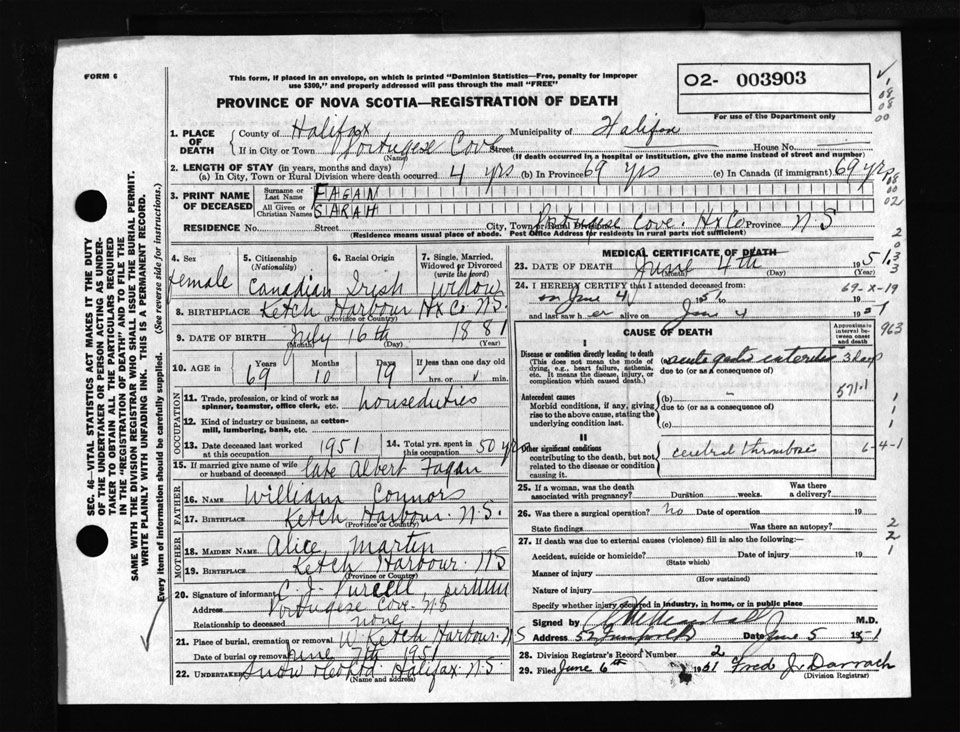 FORM 6
This form, if placed in an envelope, on which is printed "Dominion Statistics—Free, penalty for improper
use $300," and properly addressed will pass through the mail "FREE"
PROVINCE OF NOVA SCOTIA—REGISTRATION OF DEATH
O2- 003903
For use of the Department only
1. PLACE OF DEATH County of Halifax Municipality of Halifax
If in City or Town Portugese Cove Street House No.
(Name) (If death occurred in a hospital or institution, give the name instead of street and number)
2. LENGTH OF STAY (in years, months and days)
(a) In City, Town or Rural Division where death occurred 4 yrs (b) In Province 69 yrs (c) In Canada (if immigrant) 69 yrs
3. PRINT NAME OF DECEASED Surname or Last Name FAGAN
All Given or Christian Names SARAH
RESIDENCE No. Street City, Town or Rural Division Portugese Cove. Hx Co Province N.S
(Residence means usual place of abode. Post Office Address for residents in rural parts not sufficient)
SEC. 46—VITAL STATISTICS ACT MAKES IT THE DUTY
OF THE UNDERTAKER OR PERSON ACTING AS UNDER-
TAKER TO OBTAIN ALL THE PARTICULARS REQUIRED
IN THE "REGISTRATION OF DEATH" AND TO FILE THE
SAME WITH THE DIVISION REGISTRAR WHO SHALL ISSUE THE BURIAL PERMIT.
WRITE PLAINLY WITH UNFADING INK. THIS IS A PERMANENT RECORD.
Every item of information should be carefully supplied. (See reverse side for instructions.)
4. Sex female
5. Citizenship (Nationality) Canadian
6. Racial Origin Irish
7. Single, Married, Widowed or Divorced (write the word) widow
8. BIRTHPLACE Ketch Harbour Hx Co. N.S
(Province or Country)
9. DATE OF BIRTH July 16th 1881
(Month) (Day) (Year)
10. AGE in Years 69 Months 10 Days 19 If less than one day old hrs. or min.
OCCUPATION
11. Trade, profession, or kind of work as spinner, teamster, office clerk, etc. houseduties
12. Kind of industry or business, as cotton-mill, lumbering, bank, etc.
13. Date deceased last worked at this occupation 1951
14. Total yrs. spent in this occupation 50 yrs
15. If married give name of wife or husband of deceased late Albert Fagan
FATHER
16. NAME William Connors
17. BIRTHPLACE Ketch Harbour. N.S.
(Province or Country)
MOTHER
18. MAIDEN NAME Alice Martin
19. BIRTHPLACE Ketch Harbour N S
(Province or Country)
20. Signature of informant C. J. Purcell
Address Portugese Cove N S
Relationship to deceased none
21. Place of burial, cremation or removal W. Ketch Harbour. N S
Date of burial or removal June 7th 1951
22. UNDERTAKER Snow & Co Ltd Halifax N.S.
(Name and address)
MEDICAL CERTIFICATE OF DEATH
23. DATE OF DEATH June 4th 1951
(Month) (Day) (Year)
24. I HEREBY CERTIFY that I attended deceased from:
on June 4 1951
and last saw h er alive on June 4 1951
69-X-19
CAUSE OF DEATH
Approximate interval between onset and death
I
Disease or condition directly leading to death
(This does not mean the mode of dying, e.g., heart failure, asthenia, etc. It means the disease, injury, or complication which caused death.)
(a) acute gastro enteritis 3 days
due to (or as a consequence of)
963
571.1
Antecedent causes
Morbid conditions, if any, giving rise to the above cause, stating the underlying condition last.
(b)
due to (or as a consequence of)
(c)
II
Other significant conditions contributing to the death, but not related to the disease or condition causing it.
cerebral thrombosis 6-4-1
25. If a woman, was the death associated with pregnancy? Duration weeks. Was there a delivery?
26. Was there a surgical operation? No Date of operation 19
State findings Was there an autopsy?
27. If death was due to external causes (violence) fill in also the following:—
Accident, suicide or homicide? Date of injury 19
(State which)
Manner of injury
(How sustained)
Nature of injury
Specify whether injury occurred in industry, in home, or in public place
Signed by Marshall M.D.
Address 52 Date June 5 1951
28. Division Registrar's Record Number 2
29. Filed June 6th 1951 Fred J. Darrach
(Division Registrar)